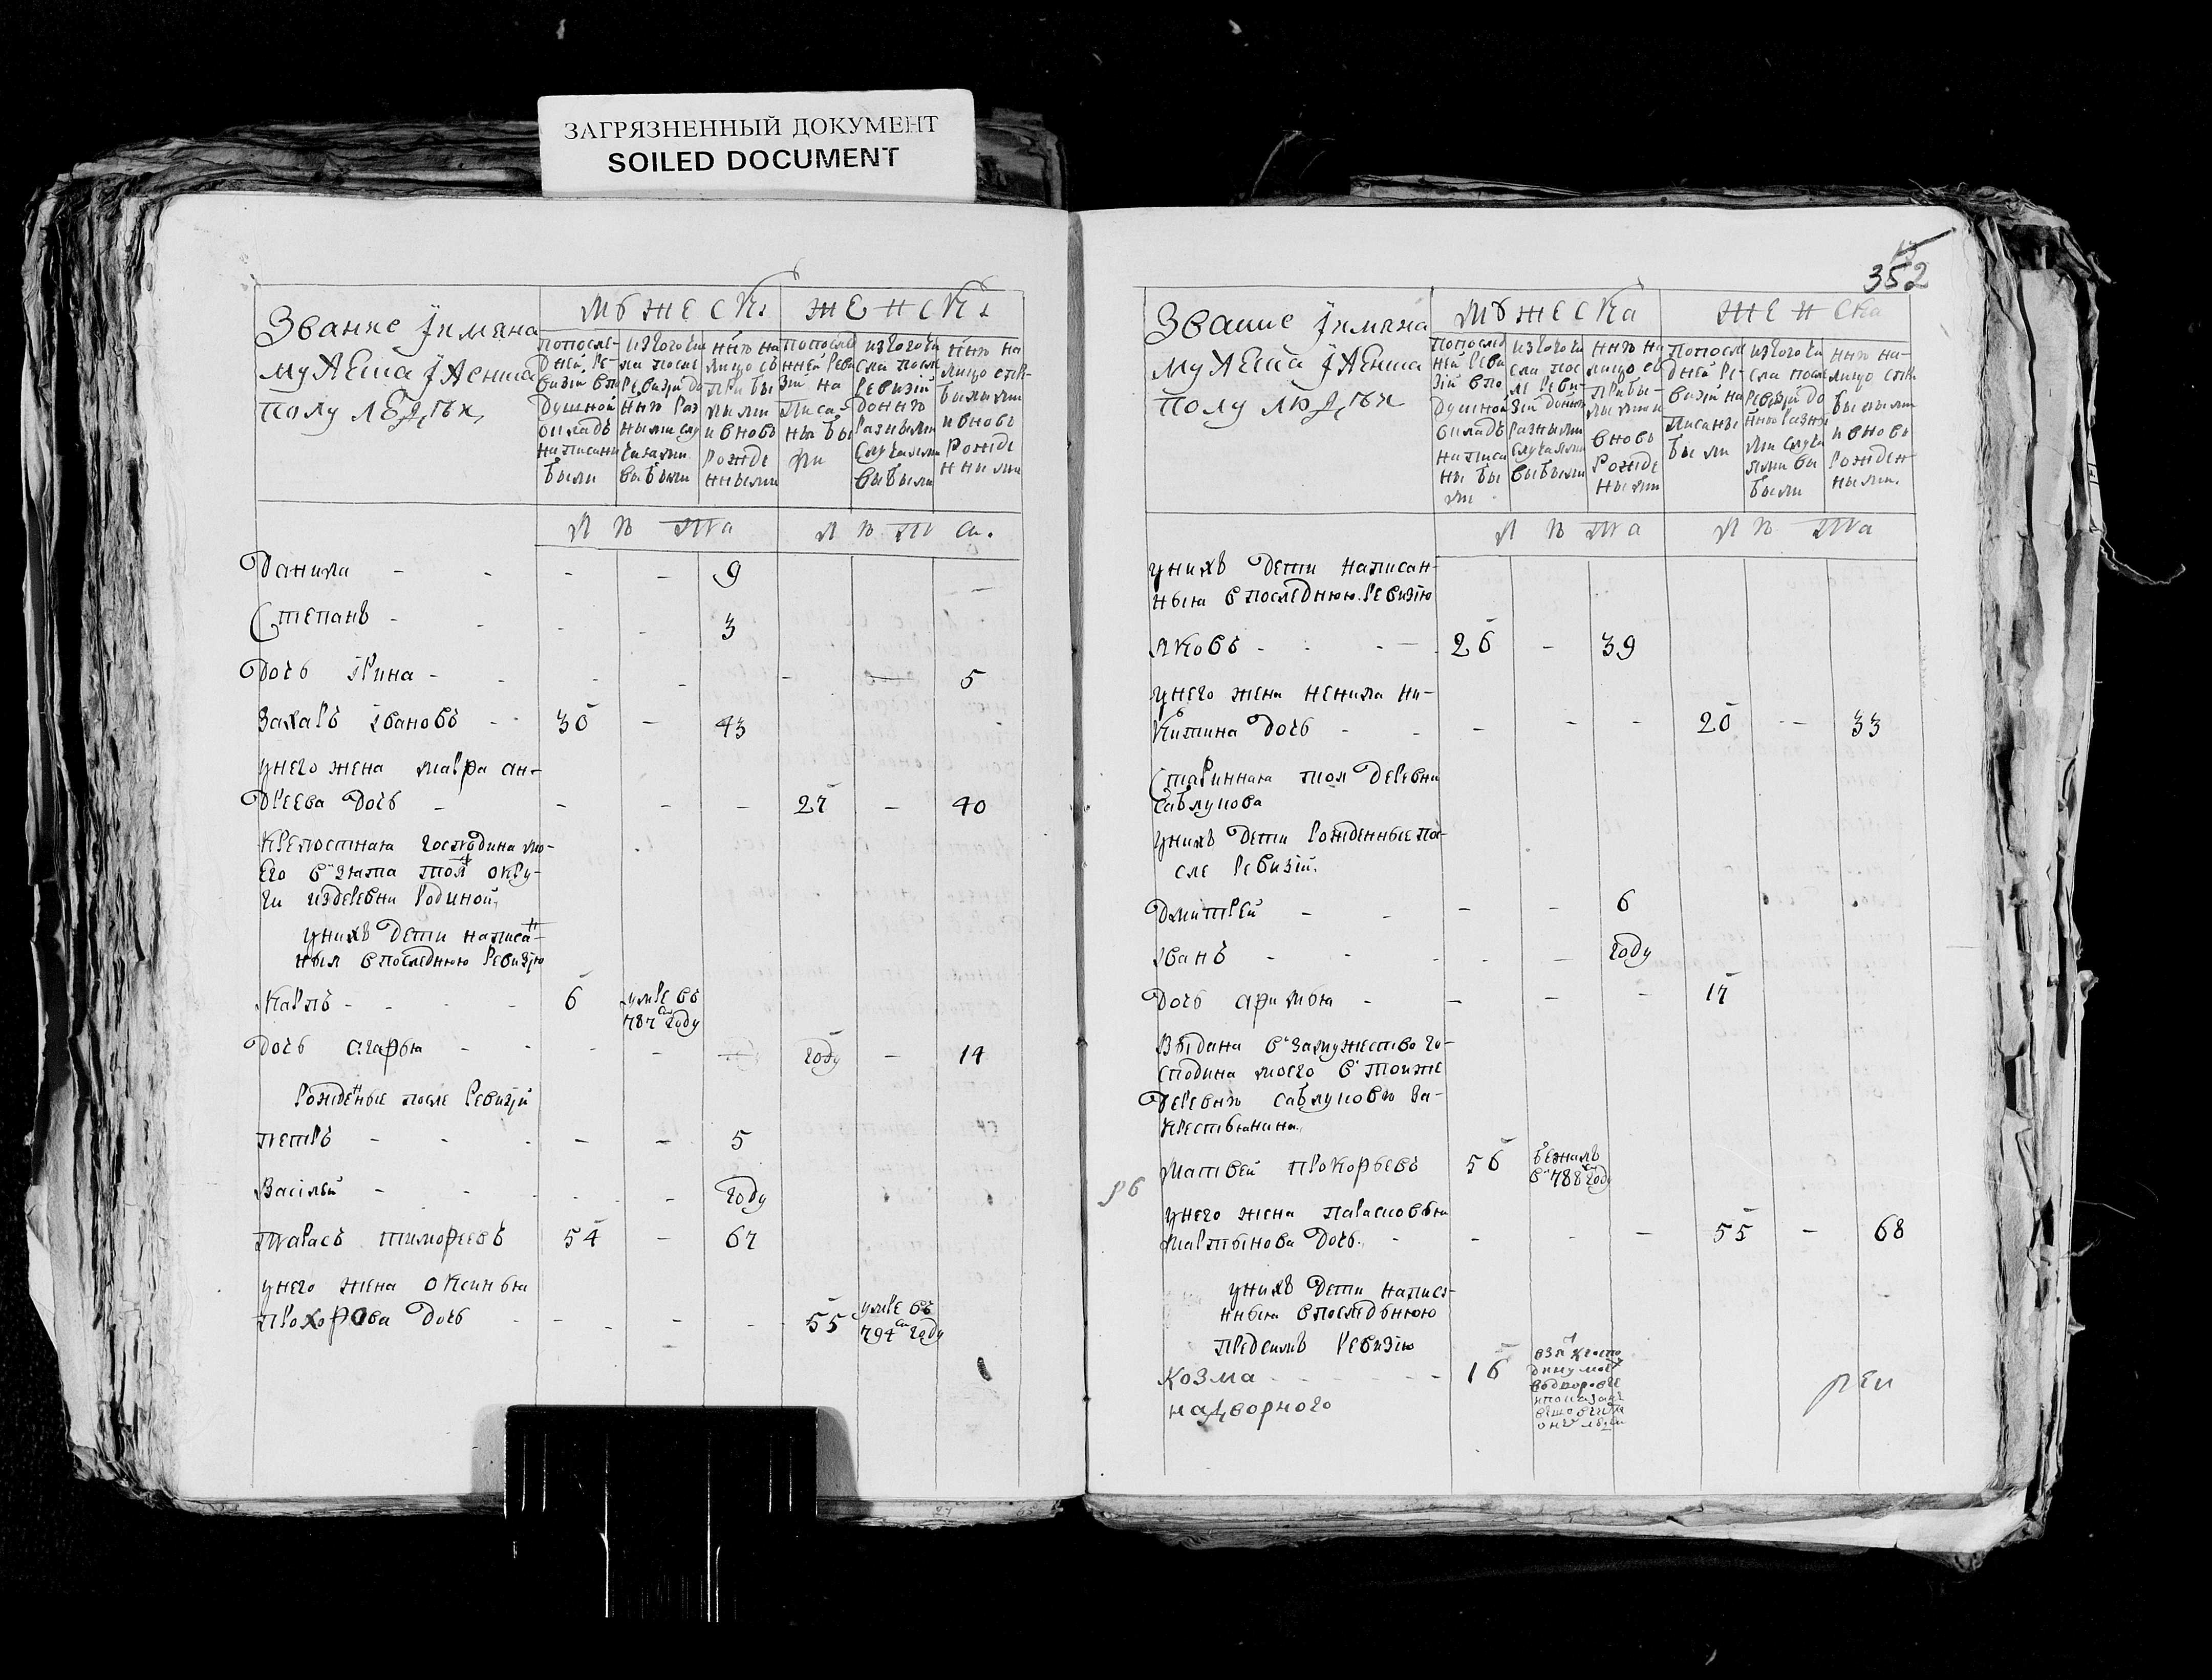 ЗАГРЯЗНЕННЫЙ ДОКУМЕНТ
SOILED DOCUMENT
Звание імяна
мужеска іженска
полу людѣи
мужеска
женска
попосле-
дней ре-
визіи впо
душной
окладъ
написаны
были
изтого чи
сла после
ревизіи до
нынѣ раз
ными слу
чаями
выбыли
нынѣ на
лицо съ
прибы
лыми
и вновь
рожде
нными
попослѣ
дней реви
зіи на
писа-
ны бы
ли
изтого чи
сла послѣ
ревизіи
донынѣ
разными
случаями
выбыли
нынѣ на
лицо съпри
былыми
и вновь
рожде
нными
лѣта
лѣта
Данила - - - - 9
Степанъ - - - - 3
дочь ирина - - - - - 5
Захаръ ивановъ - - 30 - 43
унего жена мавра ан-
дреева дочь - - - - 27 - 40
крепостная господина мо-
его взята той окру-
ги издеревни родиной
унихъ дети написа-
ныя впоследнюю ревизію
карпъ - - - - 6 умре въ
787м году
дочь агафья - - - - году - 14
рожденые после ревизіи
петръ - - - - - 5
Василей - - - - - году
тарасъ тимофеевъ 54 - 67
унего жена оксинья
прохорова дочь - - - - 55 умре въ
794м году
352
Звание імяна
мужеска іженска
полу людѣи
мужеска
женска
попослед
ней реви
зіи впо
душной
окладъ
написа
ны бы
ли
изтого чи
сла пос
ле реви-
зіи донынѣ
разными
случаями
выбыли
нынѣ на
лицо съ
прибы-
лыми и
вновь
рожде
ными
попосле
дней ре-
визіи на
писаны
были
изтого чи
сла после
ревизіи до
нынѣ разны
ми случа
ями вы
были
нынѣ на-
лицо съпри
былыми
и вновь
рожден
ными.
лѣта
лѣта
унихъ дети написан-
ныя впоследнюю ревизію
яковъ - - - 26 - 39
унего жена ненила ни-
китина дочь - - - - - 20 - 33
старинная тои деревни
савлукова
унихъ дети рожденные по-
сле ревизіи.
Дмитрей - - - - 6
иванъ - - - - - году
дочь афимья - - - - 17
выдана взамужество го-
сподина моего втоиже
деревню савлукову за-
крестьянина.
Матвей прокофьевъ 56 бежалъ
в788м году
унего жена парасковья
мартынова дочь - - - - 55 - 68
унихъ дети написа-
нныя впоследьнюю
предсимъ ревизію
козма - - - - - 16
надворного